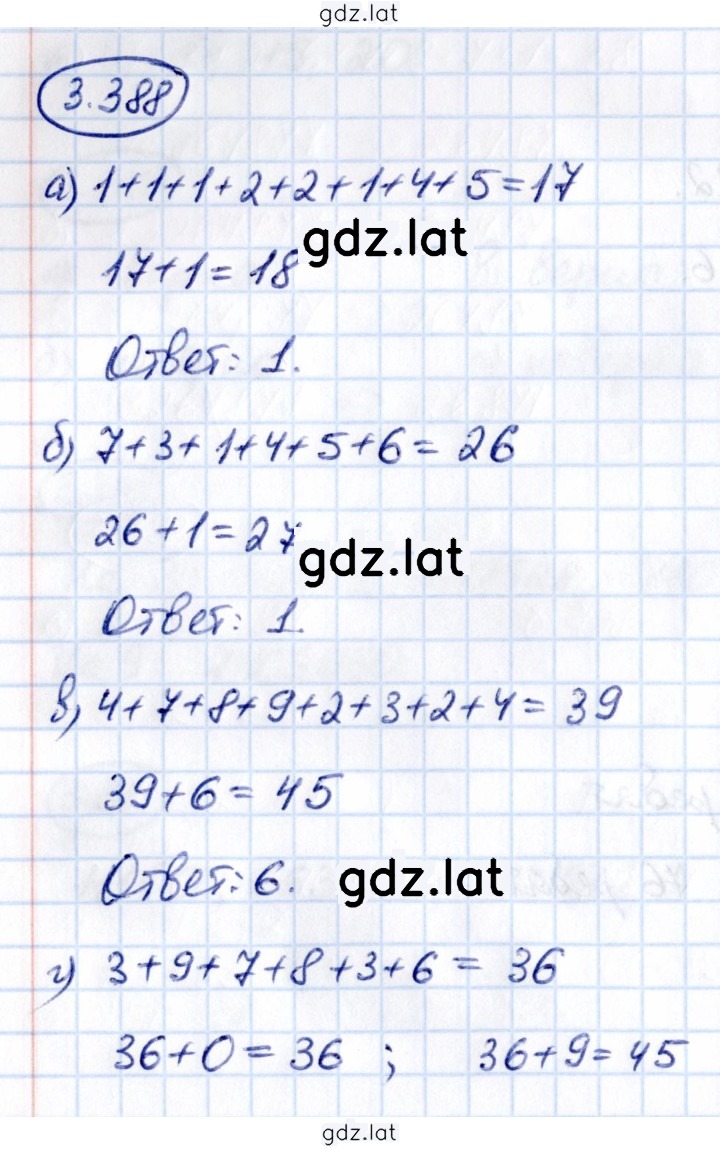 gdz.lat
3.388
а) 1+1+1+2+2+1+4+5=17
gdz.lat
17+1=18
Ответ: 1.
б) 7+3+1+4+5+6= 26
26+1=27
gdz.lat
Ответ: 1.
в) 4+7+8+9+2+3+2+4= 39
39+6= 45
Ответ: 6.
gdz.lat
г) 3+9+7+8+3+6= 36
36+0=36 ; 36+9=45
gdz.lat